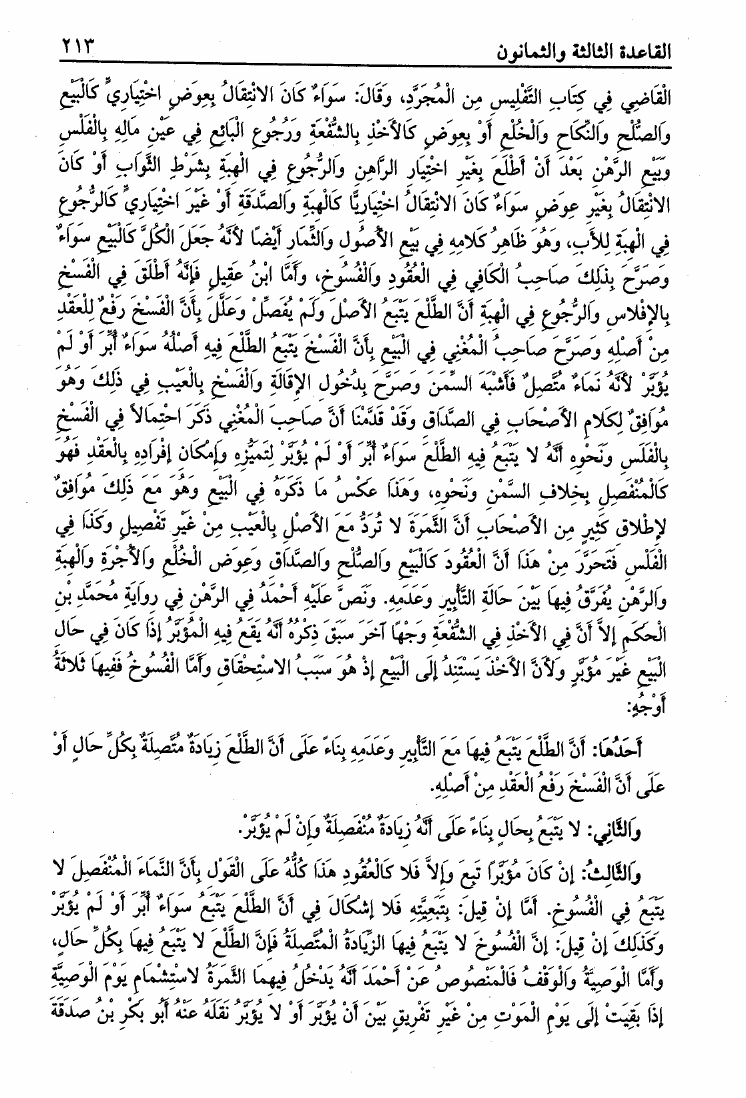 القاعدة الثالثة والثمانون ٢١٣
الْقَاضِي فِي كِتَابِ التَّفْلِيسِ مِن الْمُجَرَّدِ، وَقَالَ: سَوَاءٌ كَانَ الانْتِقَالُ بِعِوَضٍ اخْتِيَارِيٍّ كَالْبَيْعِ
وَالصُّلْحِ وَالنِّكَاحِ وَالْخُلْعِ أَوْ بِعِوَضٍ كَالأَخْذِ بِالشُّفْعَةِ وَرُجُوعِ الْبَائِعِ فِي عَيْنِ مَالِهِ بِالْفَلَسِ
وَبَيْعِ الرَّهْنِ بَعْدَ أَنْ أَطْلَعَ بِغَيْرِ اخْتِيَارِ الرَّاهِنِ وَالرُّجُوعِ فِي الْهِبَةِ بِشَرْطِ الثَّوَابِ أَوْ كَانَ
الانْتِقَالُ بِغَيْرِ عِوَضٍ سَوَاءٌ كَانَ الانْتِقَالُ اخْتِيَارِيًّا كَالْهِبَةِ وَالصَّدَقَةِ أَوْ غَيْرَ اخْتِيَارِيٍّ كَالرُّجُوعِ
فِي الْهِبَةِ لِلأَبِ، وَهُوَ ظَاهِرُ كَلامِهِ فِي بَيْعِ الأُصُولِ وَالثِّمَارِ أَيْضًا لأَنَّهُ جَعَلَ الْكُلَّ كَالْبَيْعِ سَوَاءٌ
وَصَرَّحَ بِذَلِكَ صَاحِبُ الْكَافِي فِي الْعُقُودِ وَالْفُسُوخِ، وَأَمَّا ابْنُ عَقِيلٍ فَإِنَّهُ أَطْلَقَ فِي الْفَسْخِ
بِالإِفْلاسِ وَالرُّجُوعِ فِي الْهِبَةِ أَنَّ الطَّلْعَ يَتْبَعُ الأَصْلَ وَلَمْ يُفَصِّلْ وَعَلَّلَ بِأَنَّ الْفَسْخَ رَفْعٌ لِلْعَقْدِ
مِنْ أَصْلِهِ وَصَرَّحَ صَاحِبُ الْمُغْنِي فِي الْبَيْعِ بِأَنَّ الْفَسْخَ يَتْبَعُ الطَّلْعَ فِيهِ أَصْلُهُ سَوَاءٌ أُبِّرَ أَوْ لَمْ
يُؤَبَّرْ لأَنَّهُ نَمَاءٌ مُتَّصِلٌ فَأَشْبَهَ السِّمَنَ وَصَرَّحَ بِدُخُولِ الإِقَالَةِ وَالْفَسْخِ بِالْعَيْبِ فِي ذَلِكَ وَهُوَ
مُوَافِقٌ لِكَلامِ الأَصْحَابِ فِي الصَّدَاقِ وَقَدْ قَدَّمْنَا أَنَّ صَاحِبَ الْمُغْنِي ذَكَرَ احْتِمَالاً فِي الْفَسْخِ
بِالْفَلَسِ وَنَحْوِهِ أَنَّهُ لا يَتْبَعُ فِيهِ الطَّلْعُ سَوَاءٌ أُبِّرَ أَوْ لَمْ يُؤَبَّرْ لِتَمَيُّزِهِ وَإِمْكَانِ إفْرَادِهِ بِالْعَقْدِ فَهُوَ
كَالْمُنْفَصِلِ بِخِلافِ السِّمَنِ وَنَحْوِهِ، وَهَذَا عَكْسُ مَا ذَكَرَهُ فِي الْبَيْعِ وَهُوَ مَعَ ذَلِكَ مُوَافِقٌ
لإِطْلاقِ كَثِيرٍ مِن الأَصْحَابِ أَنَّ الثَّمَرَةَ لا تُرَدُّ مَعَ الأَصْلِ بِالْعَيْبِ مِنْ غَيْرِ تَفْصِيلٍ وَكَذَا فِي
الْفَلَسِ فَتَحَرَّرَ مِنْ هَذَا أَنَّ الْعُقُودَ كَالْبَيْعِ وَالصُّلْحِ وَالصَّدَاقِ وَعِوَضِ الْخُلْعِ وَالأُجْرَةِ وَالْهِبَةِ
وَالرَّهْنِ يُفَرَّقُ فِيهَا بَيْنَ حَالَةِ التَّأْبِيرِ وَعَدَمِهِ. وَنَصَّ عَلَيْهِ أَحْمَدُ فِي الرَّهْنِ فِي رِوَايَةِ مُحَمَّدِ بْنِ
الْحَكَمِ إلاَّ أَنَّ فِي الأَخْذِ فِي الشُّفْعَةِ وَجْهًا آخَرَ سَبَقَ ذِكْرُهُ أَنَّهُ يَقَعُ فِيهِ الْمُؤَبَّرُ إذَا كَانَ فِي حَالِ
الْبَيْعِ غَيْرَ مُؤَبَّرٍ وَلأَنَّ الأَخْذَ يَسْتَنِدُ إلَى الْبَيْعِ إذْ هُوَ سَبَبُ الاسْتِحْقَاقِ وَأَمَّا الْفُسُوخُ فَفِيهَا ثَلاثَةُ
أَوْجُهٍ:
أَحَدُهَا: أَنَّ الطَّلْعَ يَتْبَعُ فِيهَا مَعَ التَّأْبِيرِ وَعَدَمِهِ بِنَاءً عَلَى أَنَّ الطَّلْعَ زِيَادَةٌ مُتَّصِلَةٌ بِكُلِّ حَالٍ أَوْ
عَلَى أَنَّ الْفَسْخَ رَفْعُ الْعَقْدِ مِنْ أَصْلِهِ.
وَالثَّانِي: لا يَتْبَعُ بِحَالٍ بِنَاءً عَلَى أَنَّهُ زِيَادَةٌ مُنْفَصِلَةٌ وَإِنْ لَمْ يُؤَبَّرْ.
وَالثَّالِثُ: إنْ كَانَ مُؤَبَّرًا تَبِعَ وَإِلاَّ فَلا كَالْعُقُودِ هَذَا كُلُّهُ عَلَى الْقَوْلِ بِأَنَّ النَّمَاءَ الْمُنْفَصِلَ لا
يَتْبَعُ فِي الْفُسُوخِ. أَمَّا إنْ قِيلَ: بِتَبَعِيَّتِهِ فَلا إشْكَالَ فِي أَنَّ الطَّلْعَ يَتْبَعُ سَوَاءٌ أُبِّرَ أَوْ لَمْ يُؤَبَّرْ
وَكَذَلِكَ إنْ قِيلَ: إنَّ الْفُسُوخَ لا يَتْبَعُ فِيهَا الزِّيَادَةُ الْمُتَّصِلَةُ فَإِنَّ الطَّلْعَ لا يَتْبَعُ فِيهَا بِكُلِّ حَالٍ،
وَأَمَّا الْوَصِيَّةُ وَالْوَقْفُ فَالْمَنْصُوصُ عَنْ أَحْمَدَ أَنَّهُ يَدْخُلُ فِيهِمَا الثَّمَرَةُ لاسْتِشْمَامِ يَوْمِ الْوَصِيَّةِ
إذَا بَقِيَتْ إلَى يَوْمِ الْمَوْتِ مِنْ غَيْرِ تَفْرِيقٍ بَيْنَ أَنْ يُؤَبَّرَ أَوْ لا يُؤَبَّرُ نَقَلَهُ عَنْهُ أَبُو بَكْرِ بْنُ صَدَقَةَ